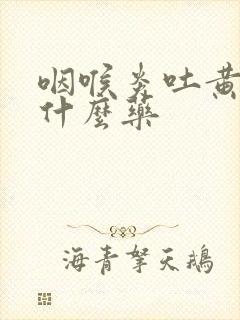 咽喉炎吐黄
什麼藥
海青拏天鵝